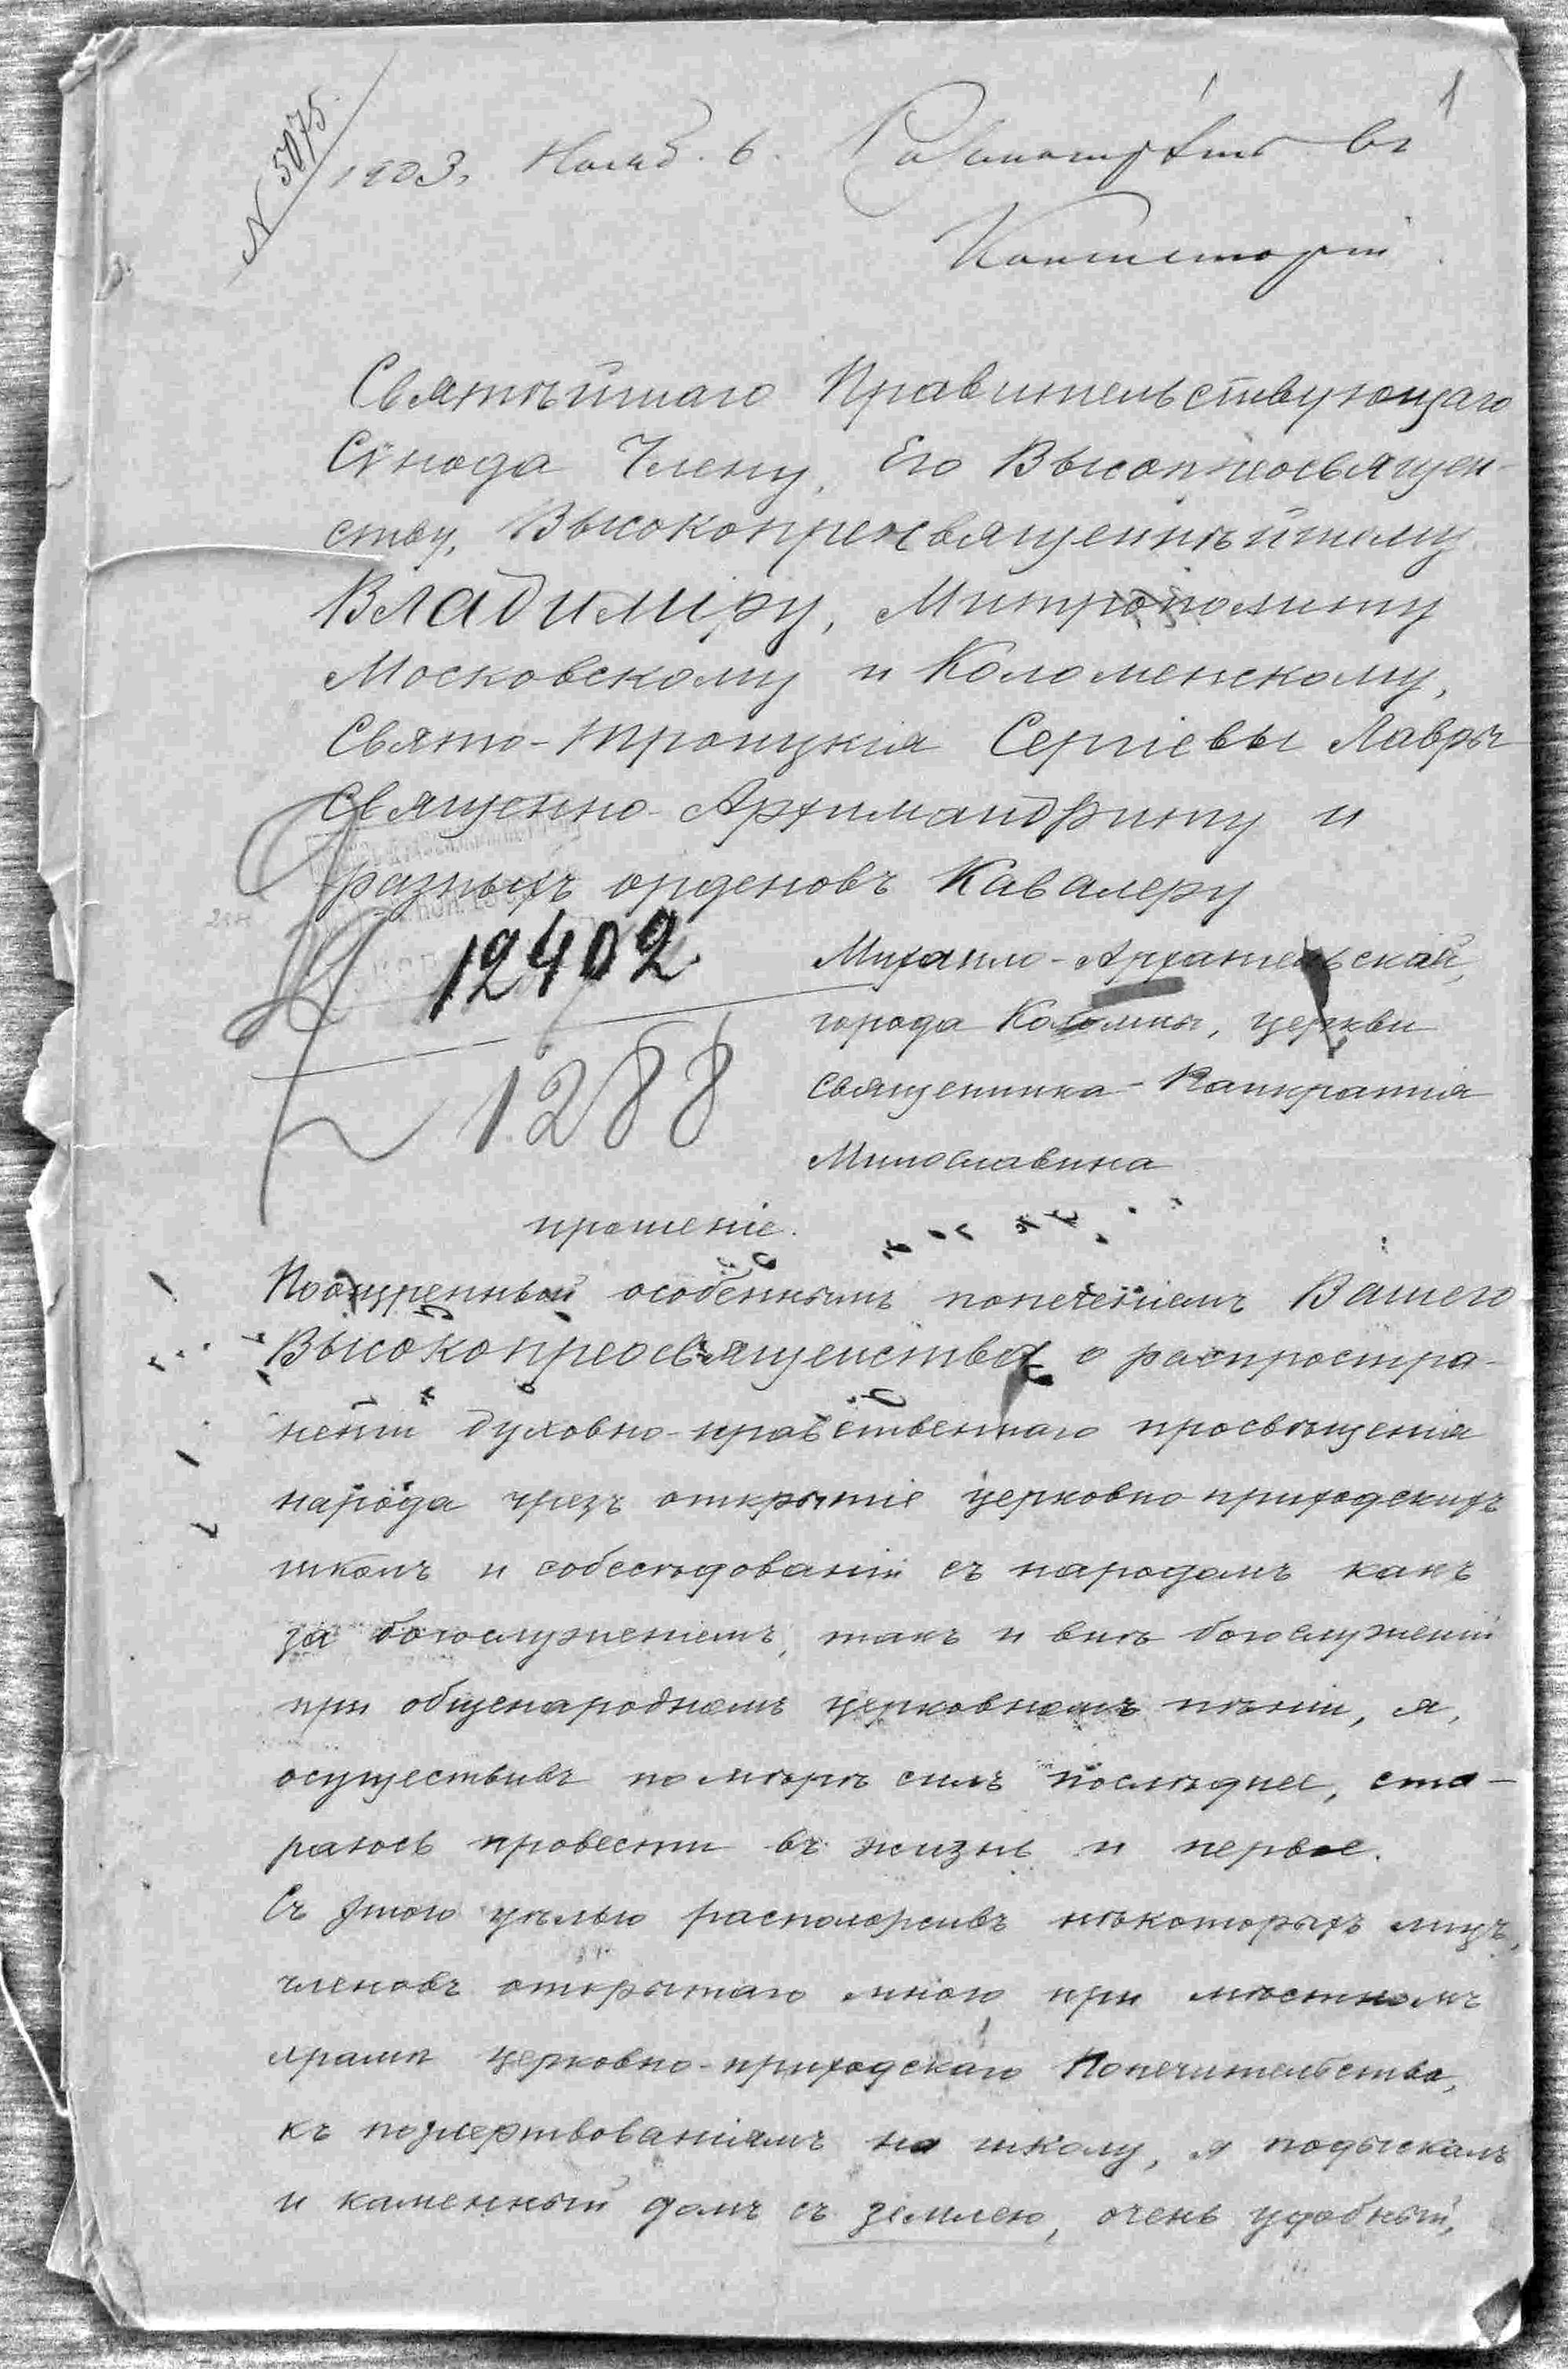 1
N 5075
1903, Нояб. 6. Разсмотрѣть въ
Консисторіи.
Святѣйшаго Правительствующаго
Сѵнода Члену, Его Высокопреосвящен-
ству, Высокопреосвященнѣйшему
Владиміру, Митрополиту
Московскому и Коломенскому,
Свято-Троицкія Сергіевы Лавры
Священно-Архимандриту и
разныхъ орденовъ Кавалеру
12402
Михаило-Архангельской,
города Коломны, церкви
священника Панкратія
1288
Милославина
прошеніе.
Поощренный особеннымъ попеченіемъ Вашего
Высокопреосвященства о распростра-
неніи духовно-нравственнаго просвѣщенія
народа чрезъ открытіе церковно приходскихъ
школъ и собесѣдованія съ народомъ какъ
за богослуженіемъ, такъ и внѣ богослуженій
при общенародномъ церковномъ пѣніи, я,
осуществивъ по мѣрѣ силъ послѣднее, ста-
раюсь провести въ жизнь и первое.
Съ этою цѣлью расположивъ нѣкоторыхъ лицъ,
членовъ открытаго мною при мѣстномъ
храмѣ церковно-приходскаго Попечительства,
къ пожертвованіямъ на школу, я подыскалъ
и каменный домъ съ землею, очень удобный,